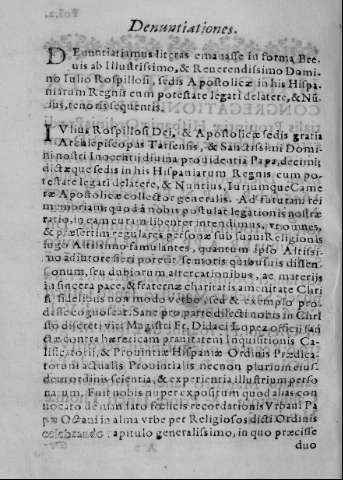 Denuntiationes.
DEnuntiatiamus literas emanasse in forma Bre-
uis ab Illustrissimo, & Reuerendissimo Domi-
no Iulio Rospillosi, sedis Apostolicæ in his Hispa-
niarum Regnis cum potestate legati de latere, & Nũ-
tius, tenoris sequentis.
IVlius Rospillosi Dei, & Apostolicæ sedis gratia
Archiepiscopus Tarsensis, & Sanctissimi Domi-
ni nostri Inocentij diuina prouidentia Papæ, decimi;
dictæque sedis in his Hispaniarum Regnis cum po-
testate legati de latere, & Nuntius, Iuriumque Came
ræ Apostolicæ collector generalis. Ad futuram rei
memoriam quod à nobis postulat legationis nostræ
ratio, in eam curam libenter intendimus, vt omnes,
& præsertim regulares personæ sub suaui Religionis
iugo Altissimo famulantes, quantum ipso Altissi-
mo adiutore fieri poterit semotis quibusuis dissen-
sionum, seu dubiorum altercationibus, ac materijs
in sincera pace, & fraternæ charitatis amenitate Chri
sti fidelibus non modo verbo, sed & exemplo pro-
desse cognoscat. Sane pro parte dilecti nobis in Chri
sto discreti viri Magistri Fr. Didaci Lopez officij san
ctæ contra hæreticam prauitatem Inquisitionis Ca-
lificatorij, & Prouintiæ Hispaniæ Ordinis Prædica-
torum actualis Prouintialis necnon plurium eius-
dem ordinis scientia, & experientia illustrium perso
narum, Fuit nobis nuper expositum quod alias con
uocato de mandato fœlicis recordationis Vrbani Pa
pæ Octaui in alma vrbe per Religiosos dicti Ordinis
celebrando capitulo generalissimo, in quo præcisse
duo